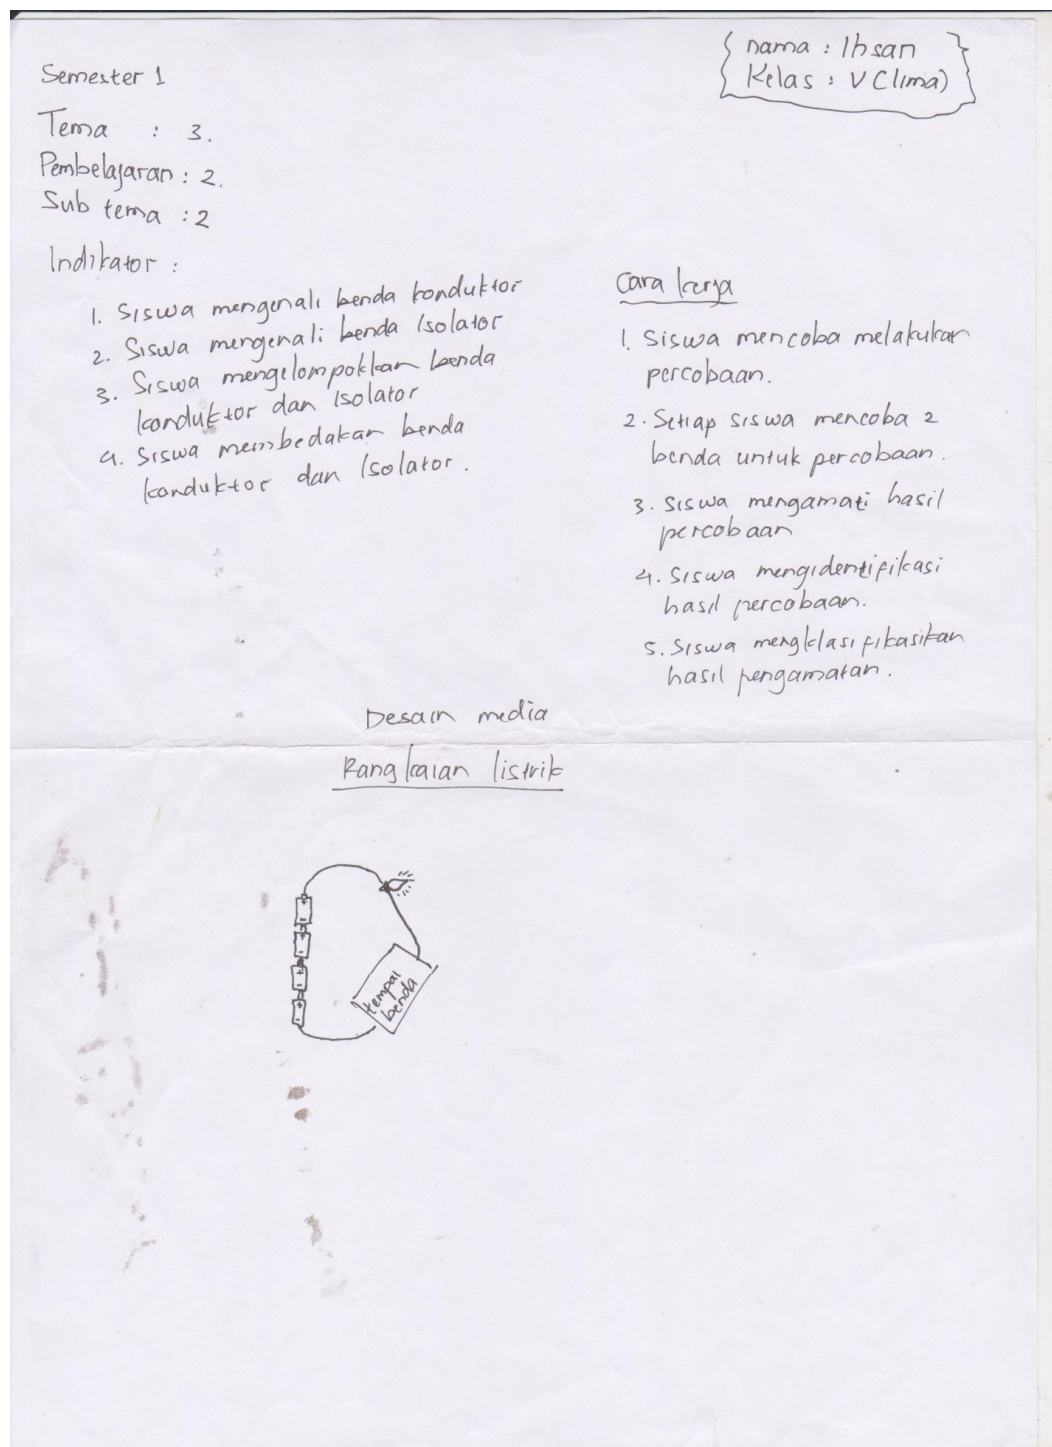 nama : Ihsan
Kelas : V (lima)
Semester 1
Tema : 3.
Pembelajaran : 2.
Sub tema : 2
Indikator :
1. Siswa mengenali benda konduktor
2. Siswa mengenali benda Isolator
3. Siswa mengelompokkan benda
konduktor dan Isolator
4. Siswa membedakan benda
konduktor dan Isolator.
Cara kerja
1. Siswa mencoba melakukan
percobaan.
2. Setiap siswa mencoba 2
benda untuk percobaan.
3. Siswa mengamati hasil
percobaan
4. Siswa mengidentifikasi
hasil percobaan.
5. Siswa mengklasifikasikan
hasil pengamatan.
Desain media
Rangkaian listrik
+
-
+
-
+
-
+
-
tempat
benda